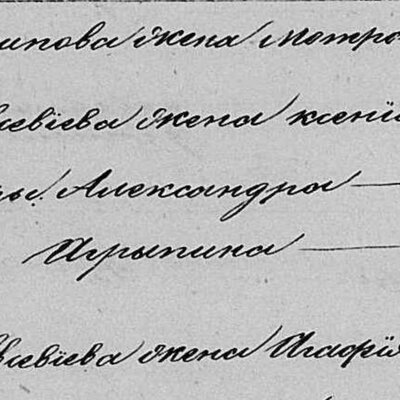 ипова жена Мотро
севіева жена ксенїя
ры Александра —
Агрыпина —
всевіева жена Агафія